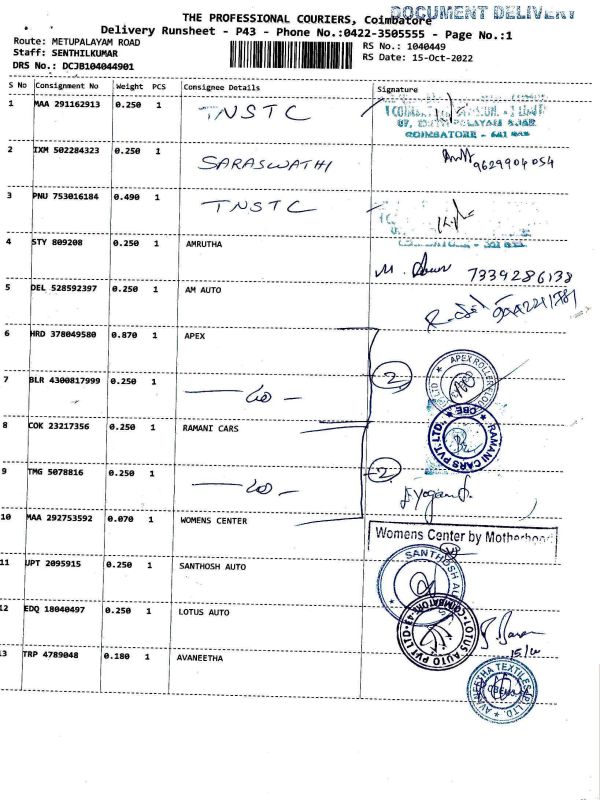 DOCUMENT DELIVERY
THE PROFESSIONAL COURIERS, Coimbatore
Delivery Runsheet - P43 - Phone No.:0422-3505555 - Page No.:1
Route: METUPALAYAM ROAD
RS No.: 1040449
Staff: SENTHILKUMAR
RS Date: 15-Oct-2022
DRS No.: DCJB104044901
S No Consignment No Weight PCS Consignee Details Signature
1 MAA 291162913 0.250 1 TNSTC
COIMBATORE - 641
2 IXM 502284323 0.250 1 SARASWATHI
9629904054
3 PNU 753016184 0.490 1 TNSTC
4 STY 809208 0.250 1 AMRUTHA
7339286138
5 DEL 528592397 0.250 1 AM AUTO
6 HRD 378049580 0.870 1 APEX
APEX
2
7 BLR 4300817999 0.250 1
8 COK 23217356 0.250 1 RAMANI CARS
RAMANI CARS PVT.LTD., CBE
2
9 TMG 5078816 0.250 1
10 MAA 292753592 0.070 1 WOMENS CENTER
Womens Center by Motherhood
11 UPT 2095915 0.250 1 SANTHOSH AUTO
SANTHOSH
12 EDQ 18040497 0.250 1 LOTUS AUTO
LOTUS AUTO PVT LTD COIMBATORE-43
13 TRP 4789048 0.180 1 AVANEETHA
AVANEETHA TEXTILES (P) LTD.